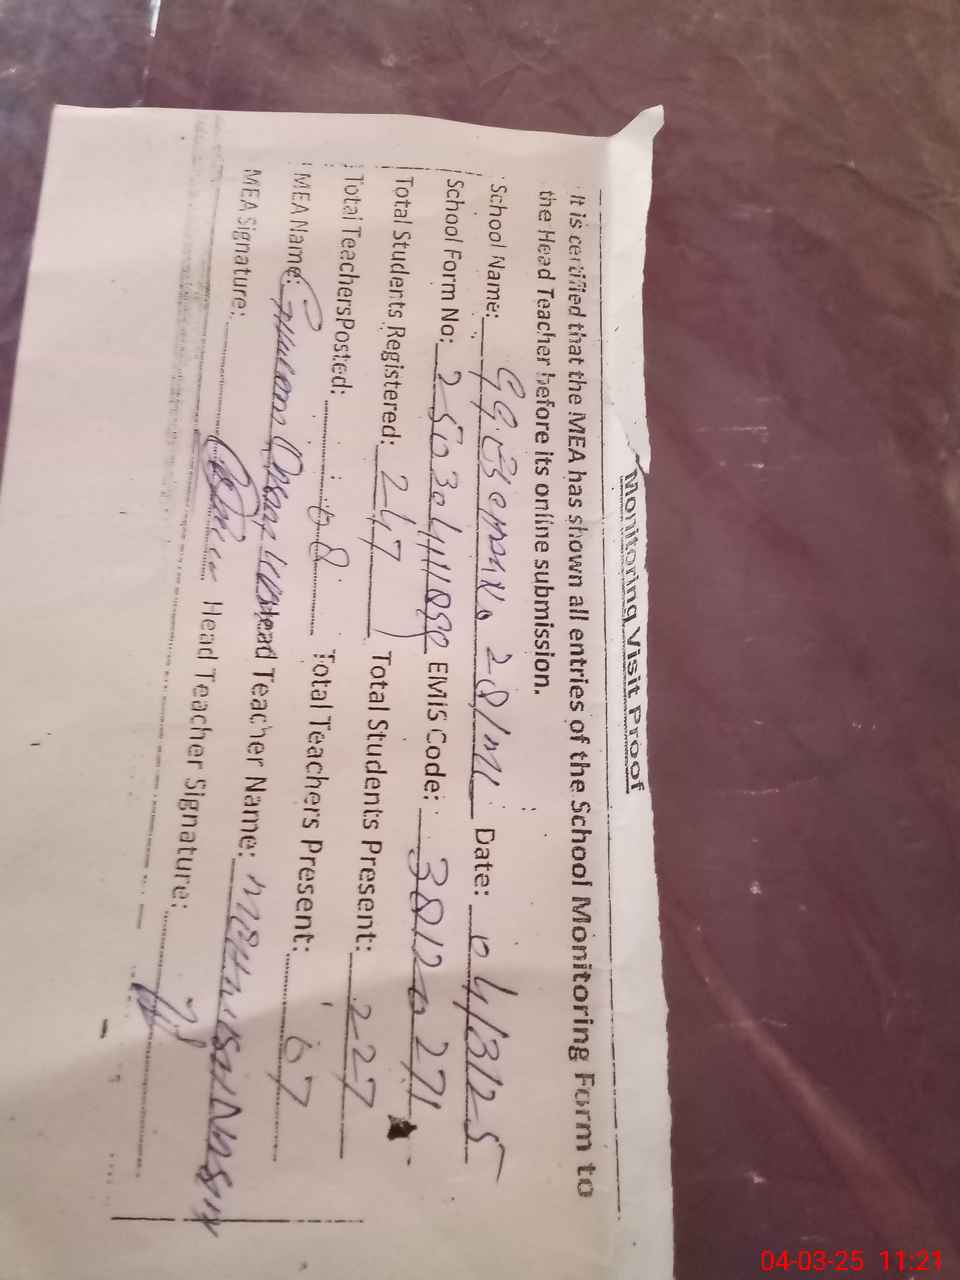 Monitoring Visit Proof
It is certified that the MEA has shown all entries of the School Monitoring Form to
the Head Teacher before its online submission.
School Name: 28/ML Date: 04/3/25
School Form No: EMIS Code: 38120271
Total Students Registered: 247 Total Students Present: 227
Total Teachers Posted: 08 Total Teachers Present: 07
MEA Name: Ghulam Head Teacher Name:
MEA Signature: Head Teacher Signature:
04-03-25 11:21